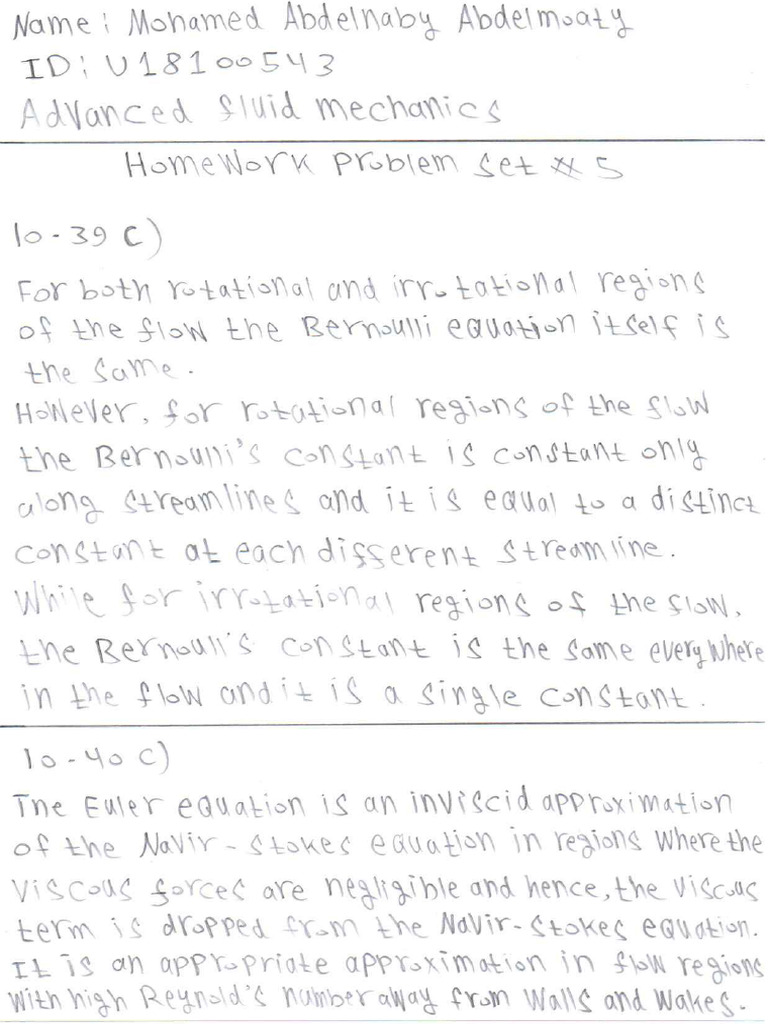 Name: Mohamed Abdelnaby Abdelmoaty
ID: U18100543
Advanced fluid mechanics
Homework problem set # 5
10-39 C)
For both rotational and irrotational regions
of the flow the Bernoulli equation itself is
the same.
However, for rotational regions of the flow
the Bernoulli's constant is constant only
along streamlines and it is equal to a distinct
constant at each different streamline.
While for irrotational regions of the flow,
the Bernoulli's constant is the same everywhere
in the flow and it is a single constant.
10-40 C)
The Euler equation is an inviscid approximation
of the Navir-Stokes equation in regions where the
viscous forces are negligible and hence, the viscous
term is dropped from the Navir-Stokes equation.
It is an appropriate approximation in flow regions
with high Reynold's number away from walls and wakes.